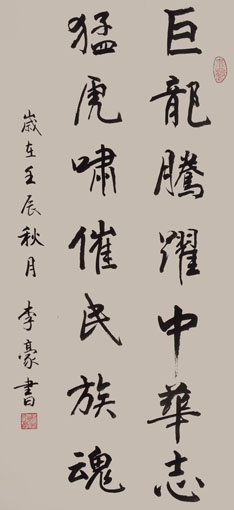 巨龍騰躍中華志
猛虎嘯催民族魂
歲在壬辰秋月 李豪書